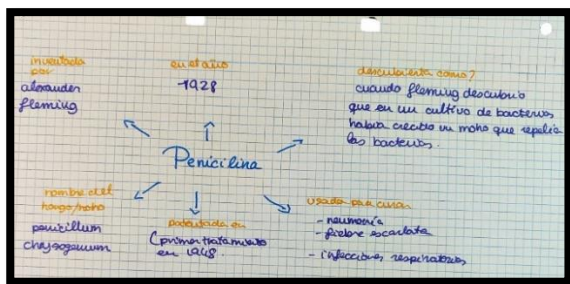 inventada
por
alexander
fleming
en el año
1928
descubierta como?
cuando fleming descubrio
que en un cultivo de bacterias
habia crecido un moho que repelia
las bacterias.
Penicilina
nombre del
hongo/moho
penicillum
chrysogenum
patentada en
(primer tratamiento
en 1948.
usada para curar
- neumonía
- fiebre escarlata
- infecciones respiratorias